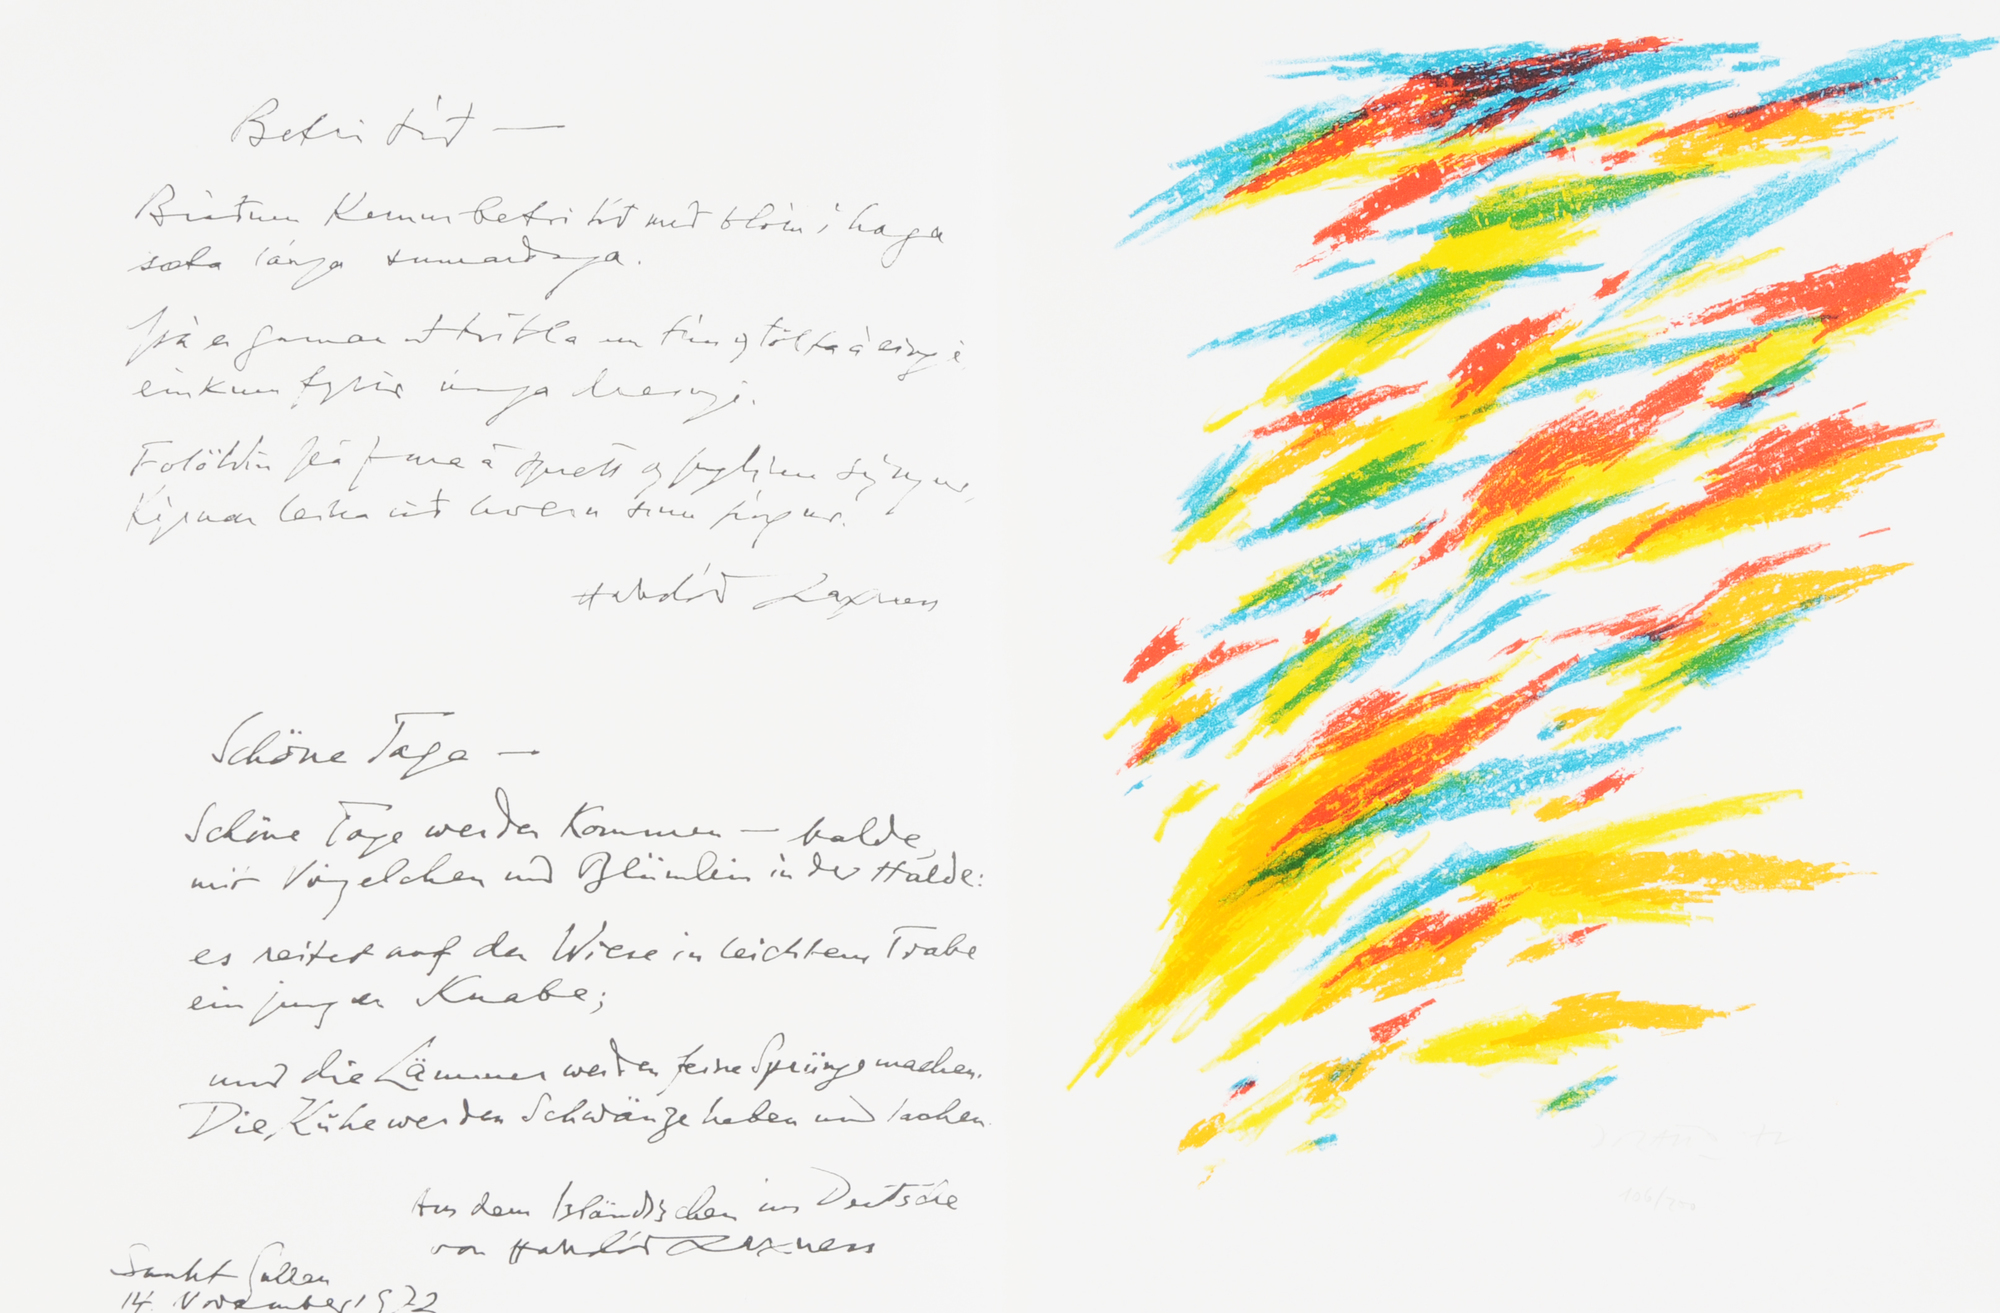 Betri tíð —
Bráðum kemur betri tíð með blóm í haga
sæta lánga sumardaga.
Þá er gaman að trítla um tún og tölta á eingi
einkum fyrir únga dreingi.
Folöldin þá fara á sprett og fuglinn sýngur,
Kýrnar leika við hvern sinn fíngur.
Halldór Laxness
Schöne Tage —
Schöne Tage werden kommen — balde,
mit Vögelchen und Blümlein in der Halde:
es reitet auf der Wiese in leichtem Trabe
ein junger Knabe;
und die Lämmer werden feine Sprünge machen.
Die Kühe werden Schwänze heben und lachen.
Aus dem Isländischen ins Deutsche
von Halldór Laxness
Sankt Gallen
14. November 1972
106/200